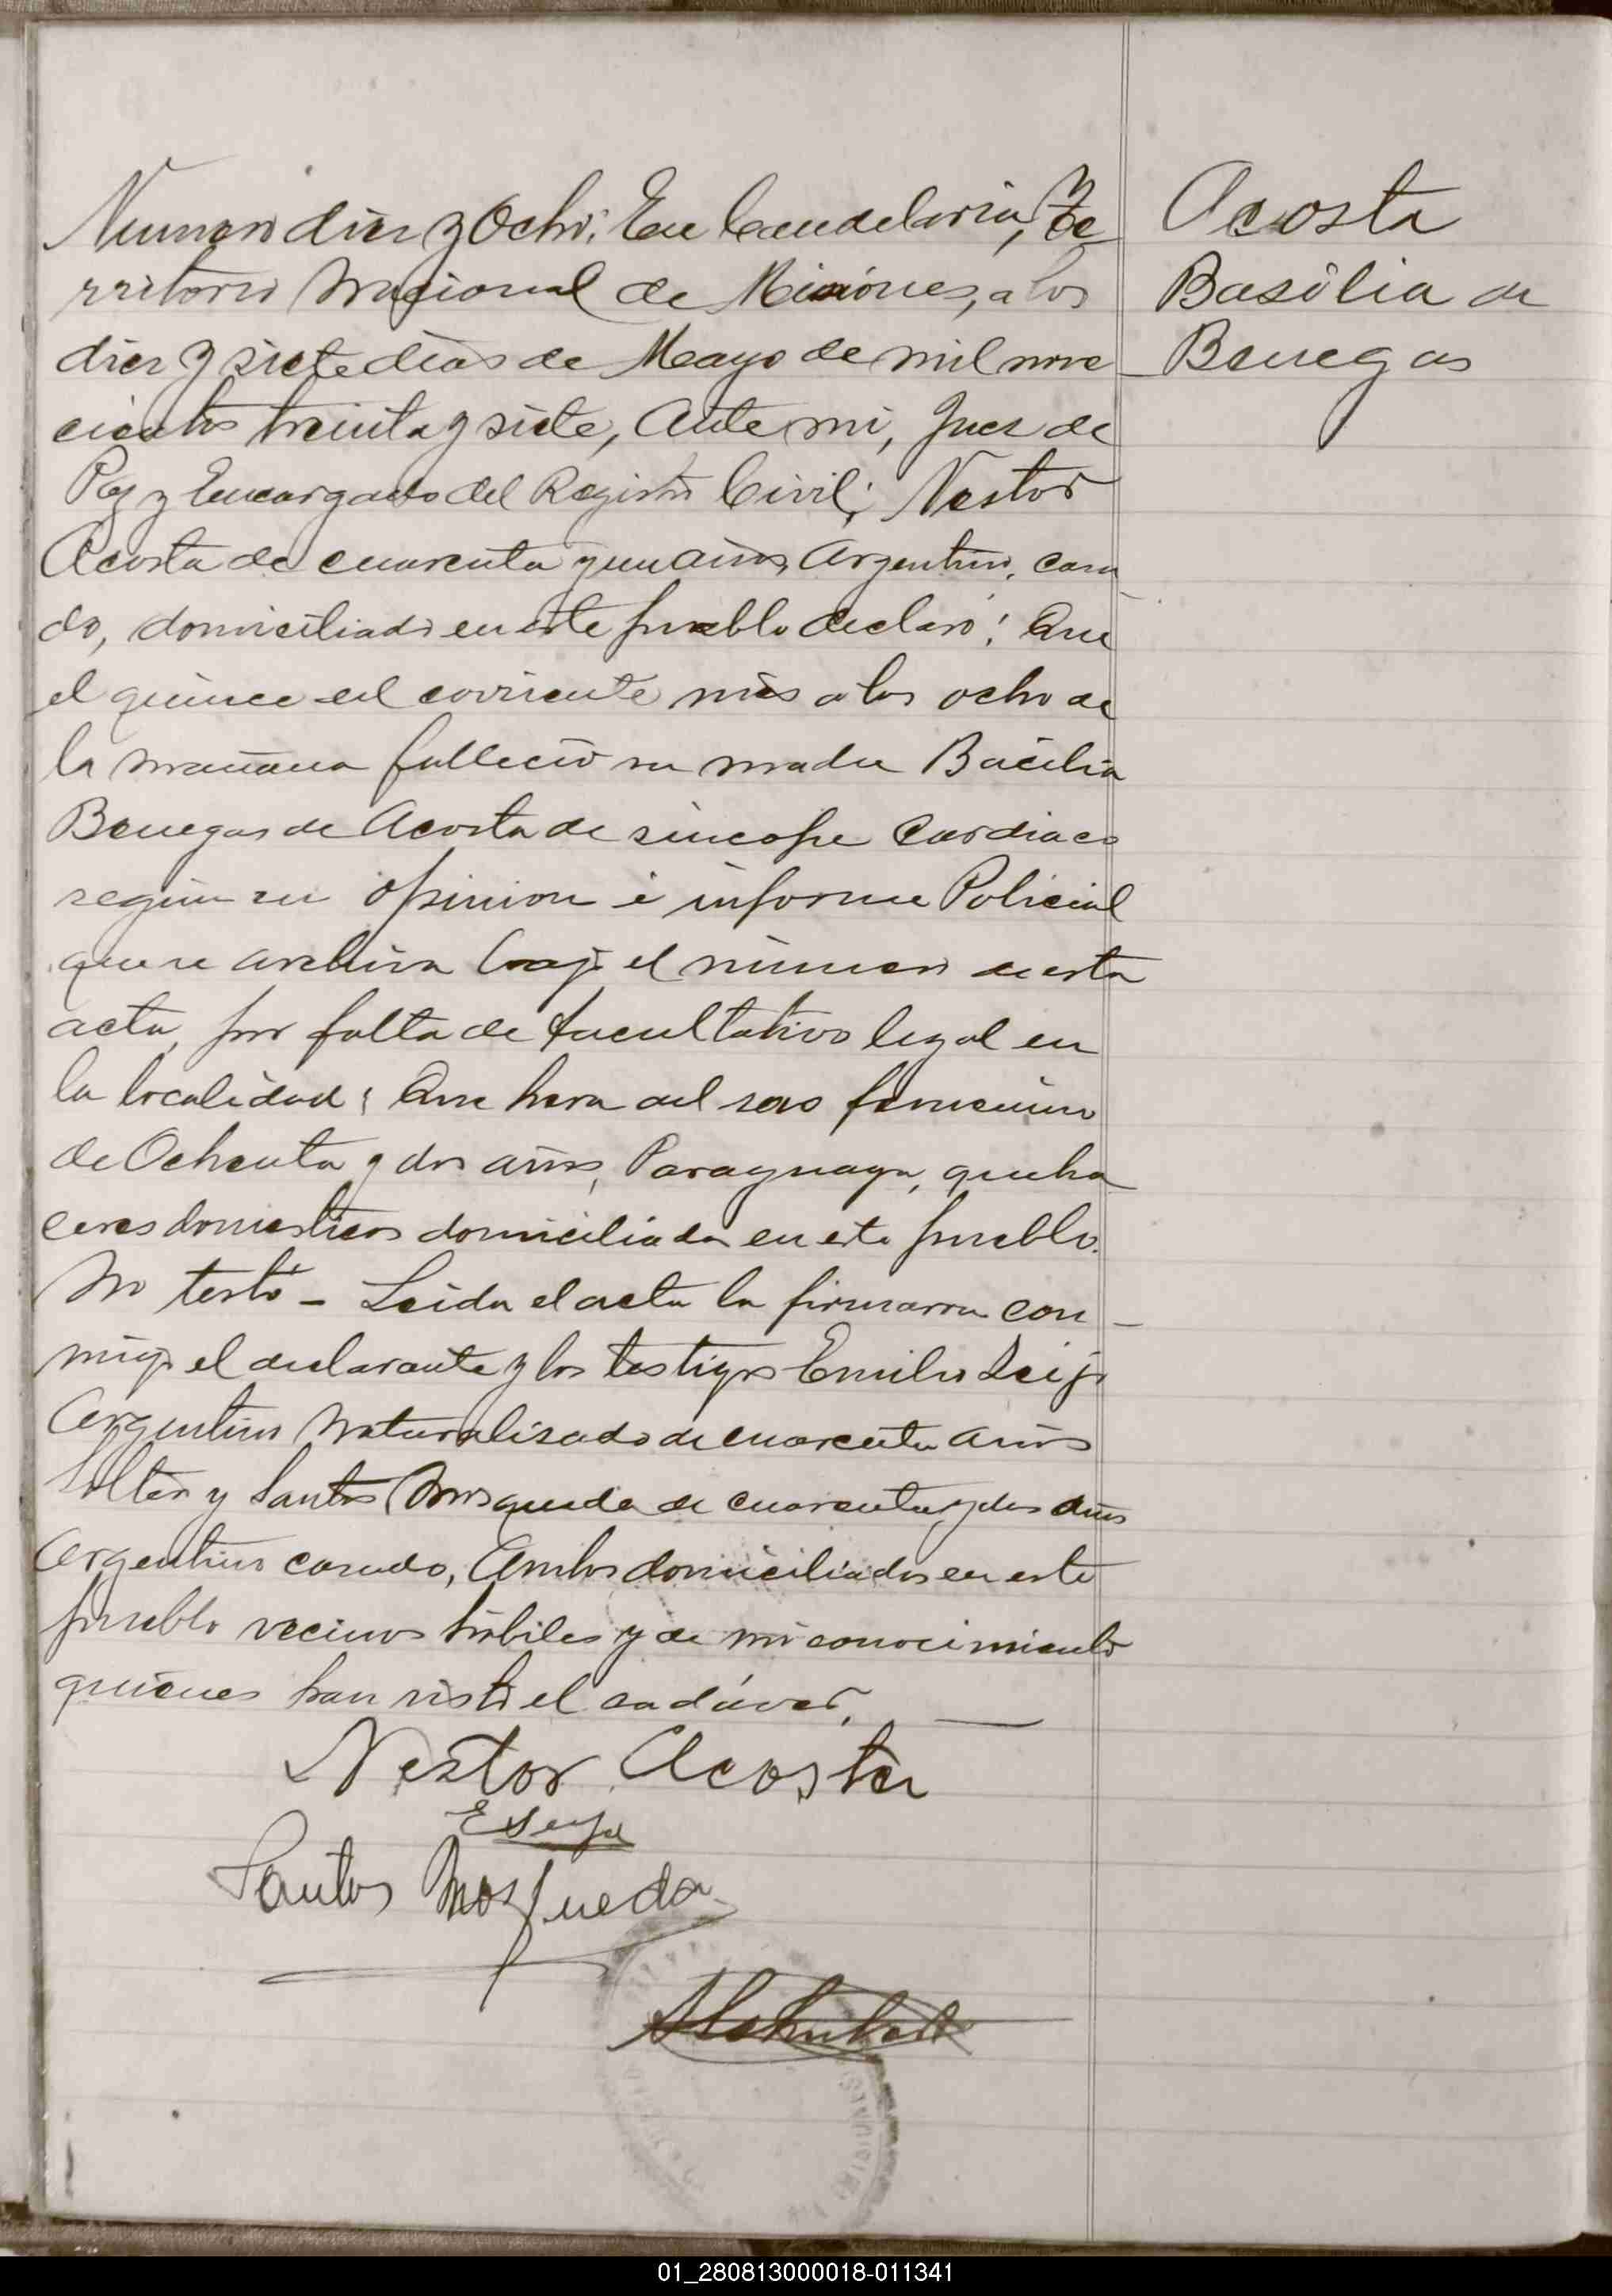 Numero diez y Ocho; En Candelaria, Te
rritorio Nacional de Misiones, a los
diez y siete dias de Mayo de mil nove
cientos treinta y siete, Ante mi, Juez de
Paz y Encargado del Registro Civil; Nestor
Acosta de cuarenta y un años, Argentino, casa
do, domiciliado en este pueblo declaró: Que
el quince del corriente mes a las ocho de
la mañana falleció su madre Bacilia
Benegas de Acosta de sincope Cardiaco
según su opinion é informe Policial
que se archiva bajo el número de esta
acta, por falta de facultativo legal en
la localidad; Que hera del sexo femenino
de Ochenta y dos años, Paraguaya, queha
ceres domesticos domiciliada en este pueblo.
No testó - Leida el acta la firmaron con
migo el declarante y los testigos Emilio Seijo
Argentino Naturalisado de cuarenta años
Soltero y Santos Mosqueda de cuarenta y dos años
Argentino casado, Ambos domiciliados en este
pueblo vecinos hábiles y de mi conocimiento
quienes han visto el cadáver.
Nestor Acosta
Santos Mosqueda
Acosta
Basilia de
Benegas
01_280813000018-011341